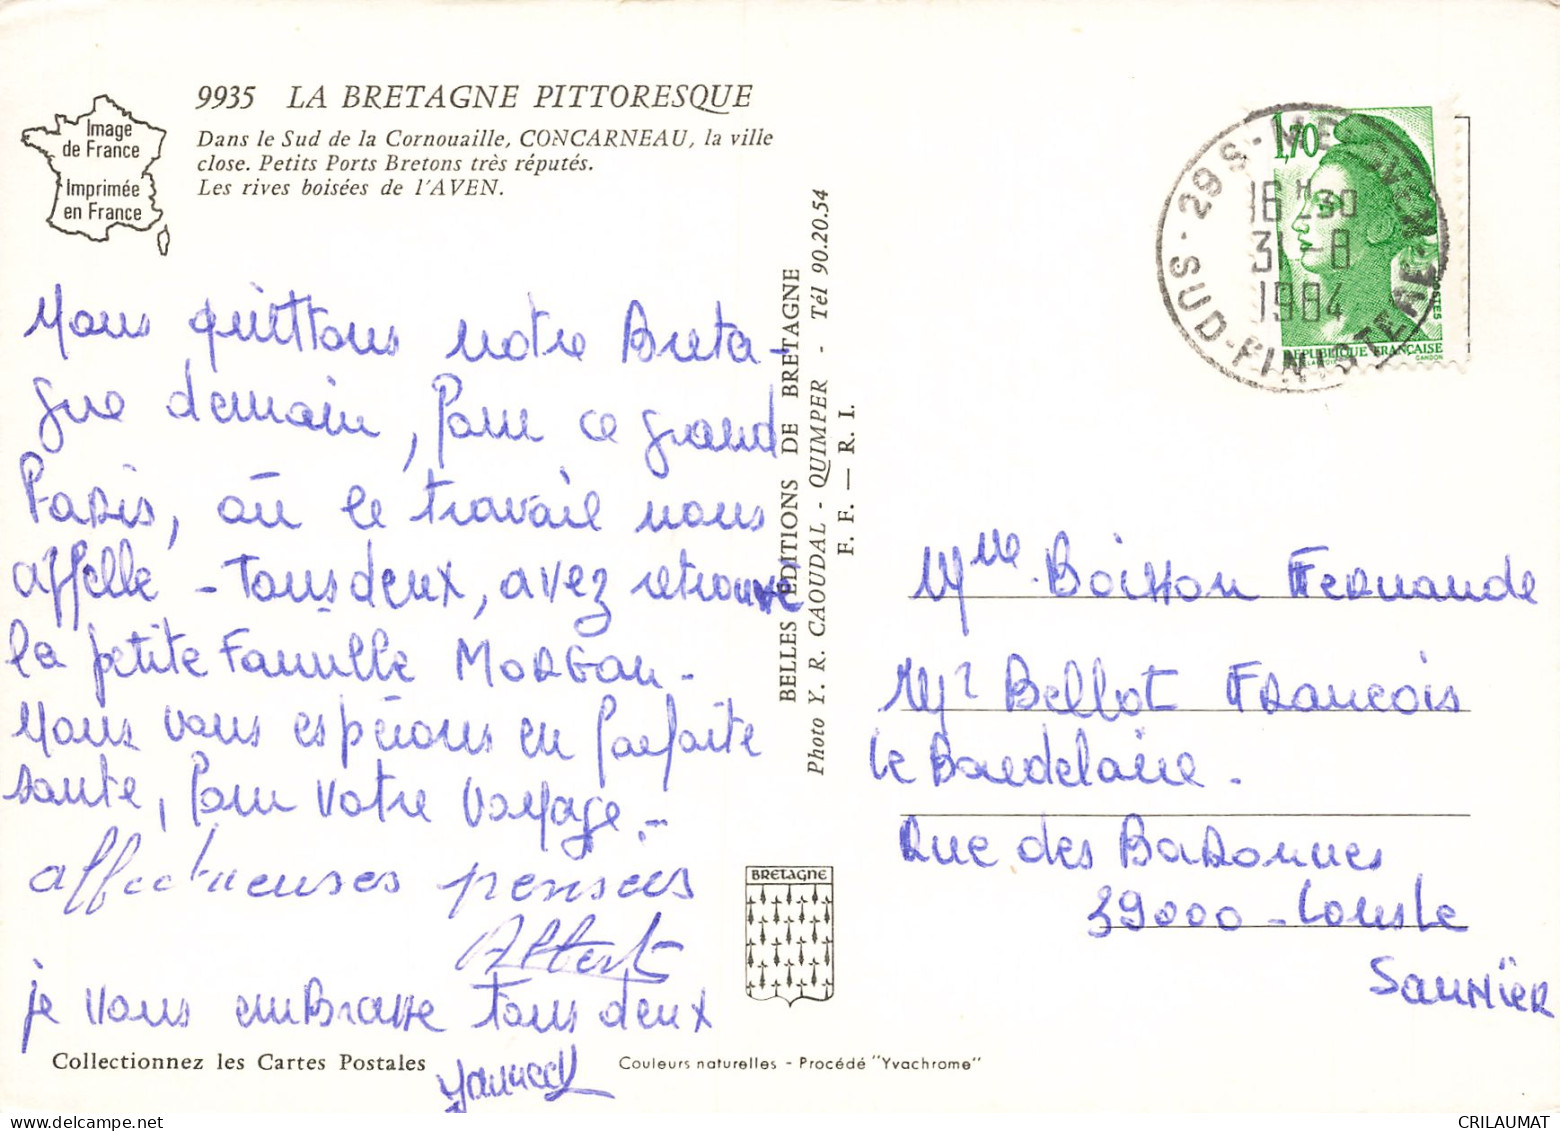 9935 LA BRETAGNE PITTORESQUE
Dans le Sud de la Cornouaille, CONCARNEAU, la ville
close. Petits Ports Bretons très réputés.
Les rives boisées de l'AVEN.
Image
de France
Imprimée
en France
Nous quittons notre Breta-
gne demain, Pour ce grand
Paris, où le travail nous
appelle - Tous deux, avez retrouvé
la petite Famille MORGAN -
Nous vous espérons en parfaite
santé, Pour votre voyage. -
affectueuses pensées
Albert
je vous emBrasse tous deux
Collectionnez les Cartes Postales
Couleurs naturelles - Procédé "Yvachrome"
BELLES EDITIONS DE BRETAGNE
Photo Y. R. CAOUDAL - QUIMPER - Tél 90.20.54
F. F. — R. I.
BRETAGNE
1,70
16 H 30
31 -8
1984
SUD-FINISTERE
POSTES
REPUBLIQUE FRANÇAISE
GANDON
Mme Boisson Fernande
Mr Bellot François
le Baudelaire.
Rue des Baronnes
39000 - Lons le
Saunïer
CRILAUMAT